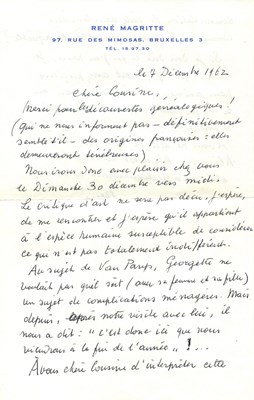 RENÉ MAGRITTE
97, RUE DES MIMOSAS, BRUXELLES 3
TÉL. 15.97.30
le 7 Décembre 1962
Chère Cousine,
Merci pour les découvertes généalogiques !
(Qui ne nous informent pas — définitivement
semble-t-il — des origines françaises : elles
demeureront ténébreuses)
Nous irons donc avec plaisir chez vous
le Dimanche 30 décembre vers midi.
Le critique d'art ne sera pas déçu, j'espère,
de me rencontrer et j'espère qu'il appartient
à l'espèce humaine susceptible de considérer
ce qui n'est pas totalement indifférent.
Au sujet de Van Parys, Georgette ne
voulait pas qu'il soit (avec sa femme et sa fille)
un sujet de complications ménagères. Mais
depuis, après notre visite avec lui, il
nous a dit : "c'est donc ici que nous
viendrons à la fin de l'année" ! ...
À vous chère Cousine d'interpréter cette